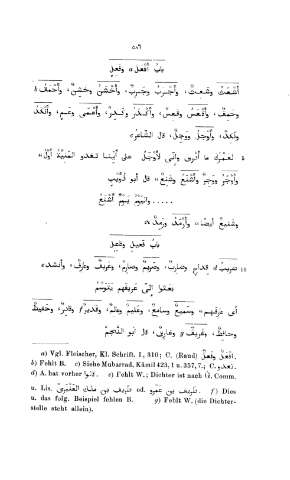 ٥٨٦
باب أفعل a وفعل
أشعث وشعث، وأجرب وجرب، وأخشن وخشن، وأحمق b
وحمق، وأقعس وقعس، وأكدر وكدر، وأعمى وعم، وأنكد
ونكد، وأوجل ووجل، قال الشاعر c
لعمرك ما أدرى وإنى لأوجل على أينا تغدو المنية أول d
وأوجر ووجر وأشنع وشنع e قال أبو ذؤيب
..... واليوم يوم أشنع
وشنيع أيضا، وأرمد ورمد
باب فعيل وفاعل
ضريب قداح وضارب، وصريم وصارم، وعريف وعارف، وأنشد
بعثوا إلى عريفهم يتوسم
أى عارفهم، وسميع وسامع، وعليم وعالم، وقدير f وقادر، وحفيظ
وحافظ، وغريف g وغارف، قال أبو النجم
a) Vgl. Fleischer, Kl. Schrift. I, 310; C. (Rand) أفعل وفعل.
b) Fehlt B. c) Siehe Mubarrad, Kâmil 423, 1 u. 357, 7.; C. تعدو.
d) A. hat vorher كانوا. e) Fehlt W.; Dichter ist nach G. Comm.
u. Lis. طريف بن مالك العنبرى od. طريف بن عمرو. f) Dies
u. das folg. Beispiel fehlen B. g) Fehlt W. (die Dichter-
stelle steht allein).